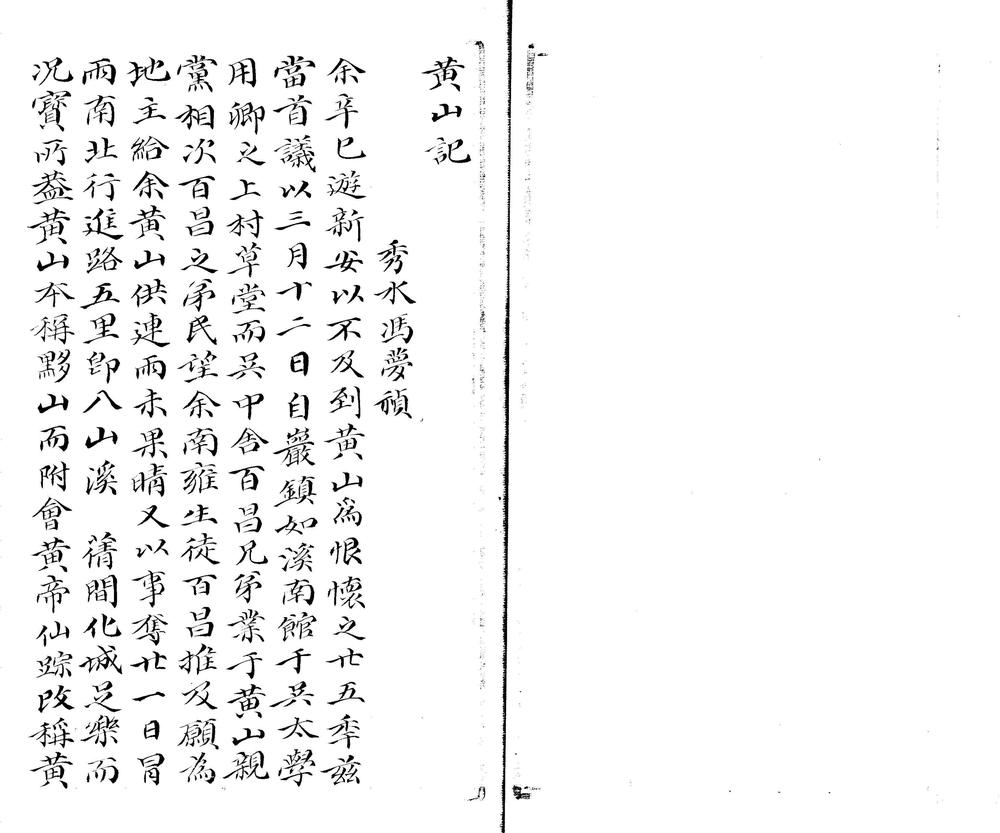 黄山記
秀水馮夢禎
余辛巳遊新安以不及到黄山爲恨懷之廿五秊兹
當首議以三月十二日自巖鎮如溪南館于吴太學
用卿之上村草堂而吴中舍百昌兄弟業于黄山親
黨相次百昌之弟民望余南雍生徒百昌推及願為
地主給余黄山供連雨未果晴又以事奪廿一日冒
雨南北行進路五里卽八山溪 蒨間化城足樂而
况寳所葢黄山本稱黟山而附會黄帝仙踪改稱黄